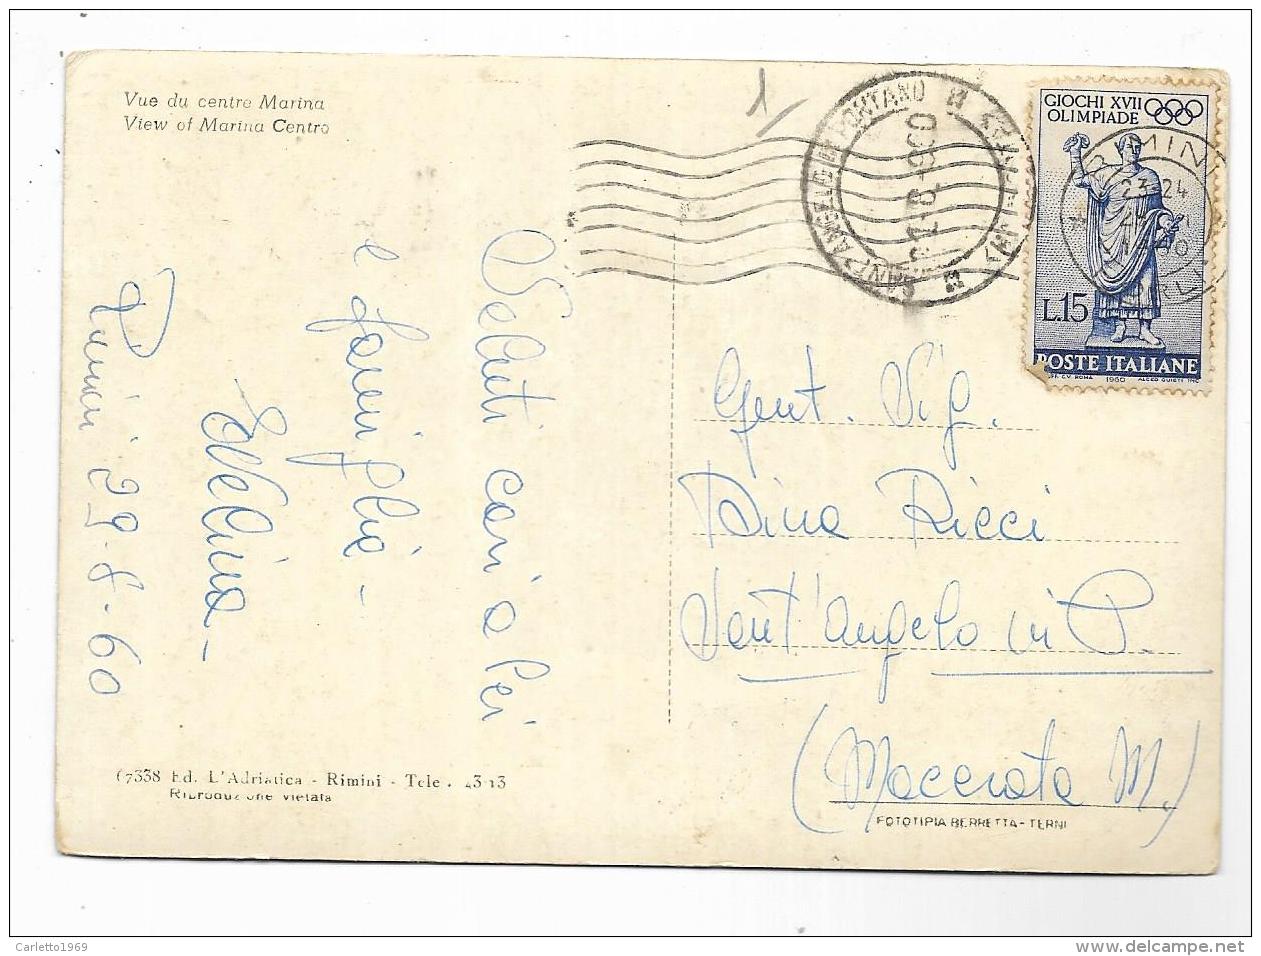 Vue du centre Marina
View of Marina Centro
Saluti cari a lei
e famiglia -
Evelina -
Rimini 29-8-60
67338 Ed. L'Adriatica - Rimini - Tele . 43-13
Riproduzione vietata
SANT'ANGELO IN PONTANO
GIOCHI XVII
OLIMPIADE
RIMINI
23-24
L.15
POSTE ITALIANE
1960
Gent. Sig.
Dina Ricci
Sant'Angelo in P.
(Macerata M.)
FOTOTIPIA BERRETTA - TERNI
Carletto1969
www.delcampe.net